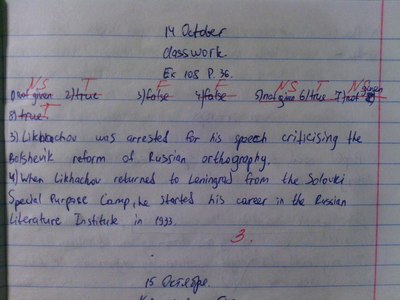 14 October
classwork.
Ex 108 P. 36.
NS T T T NS T NS
1) not given 2) true 3) false 4) false 5) not given 6) true 7) not given
T
8) true
3) Likhachov was arrested for his speech criticising the
Bolshevik reform of Russian orthography.
4) When Likhachov returned to Leningrad from the Solovki
Special Purpose Camp, he started his career in the Russian
Literature Institute in 1933.
3.
15 Октября.